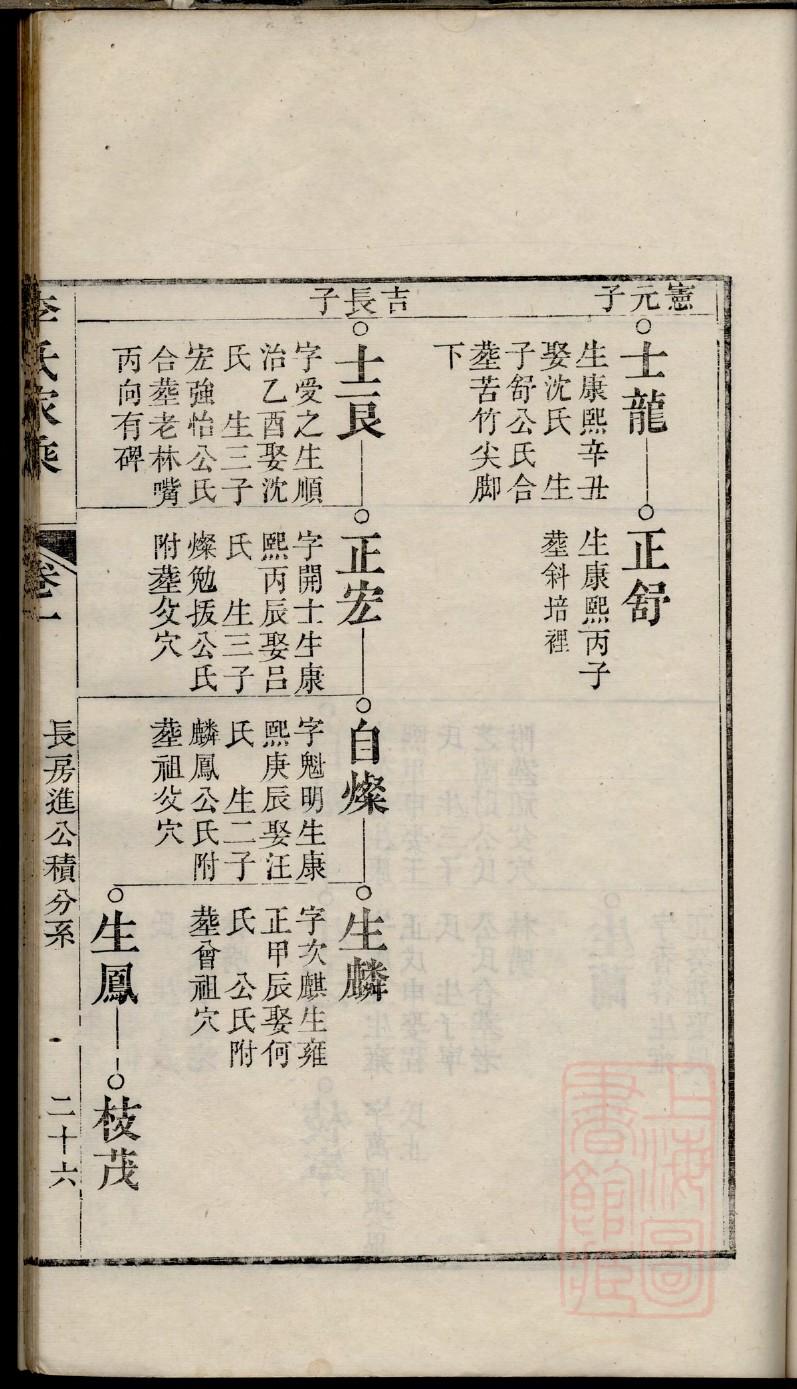 憲元子
士龍
生康熙辛丑
娶沈氏 生
子舒公氏合
塟苦竹尖脚
下
正舒
生康熙丙子
塟斜培裡
吉長子
士良
字愛之生順
治乙酉娶沈
氏 生三子
宏強怡公氏
合塟老林嘴
丙向有碑
正宏
字開士生康
熙丙辰娶呂
氏 生三子
燦勉扳公氏
附塟父穴
自燦
字魁明生康
熙庚辰娶汪
氏 生二子
麟鳳公氏附
塟祖父穴
生麟
字次麒生雍
正甲辰娶何
氏 公氏附
塟曾祖穴
生鳳
枝茂
李氏家乘
卷一
長房進公積分系
二十六
上海圖書館藏